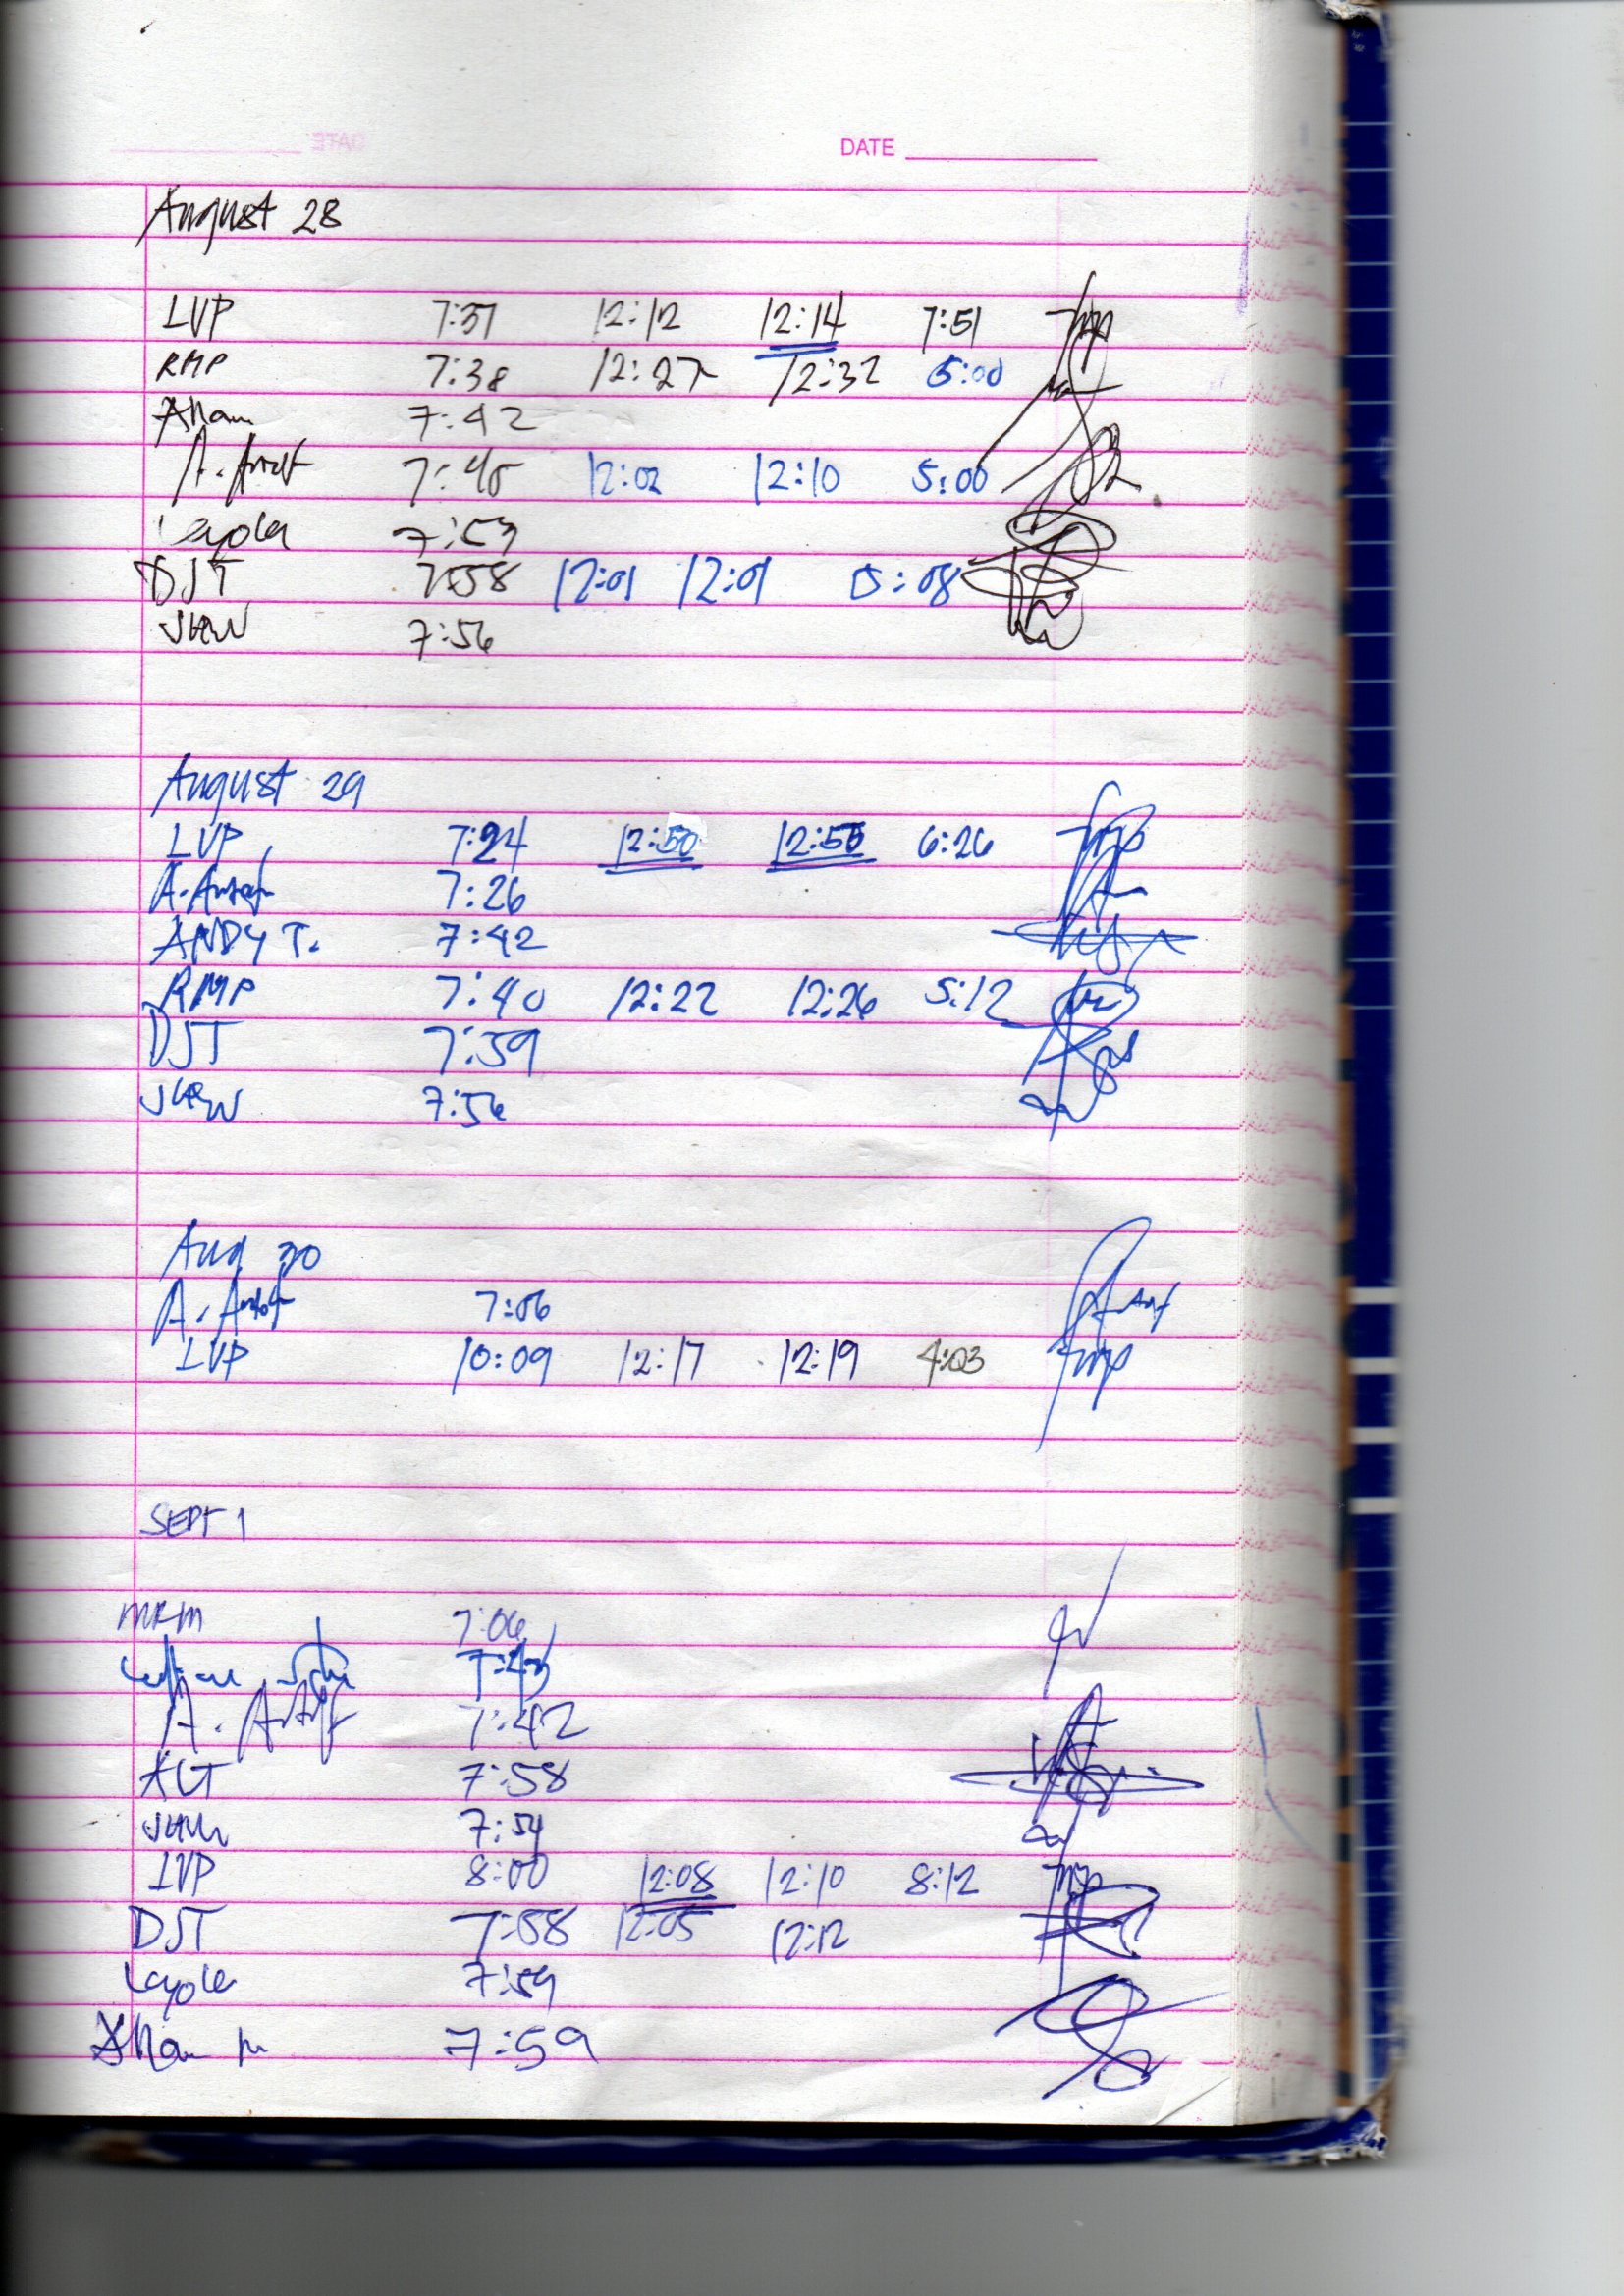 DATE
August 28
LVP 7:37 12:12 12:14 7:51
RMP 7:38 12:27 12:32 5:00
Allan 7:42
A. 7:45 12:02 12:10 5:00
Layola 7:53
DJT 7:58 12:01 12:01 5:08
7:56
August 29
LVP 7:24 12:50 12:55 6:26
A. 7:26
ANDY T. 7:42
RMP 7:40 12:22 12:26 5:12
DJT 7:59
7:56
Aug 30
A. 7:06
LVP 10:09 12:17 12:19 4:03
SEPT 1
MRM 7:06
A. 7:42
7:58
7:54
LVP 8:00 12:08 12:10 8:12
DJT 7:58 12:05 12:12
Layola 7:59
Allan M 7:59